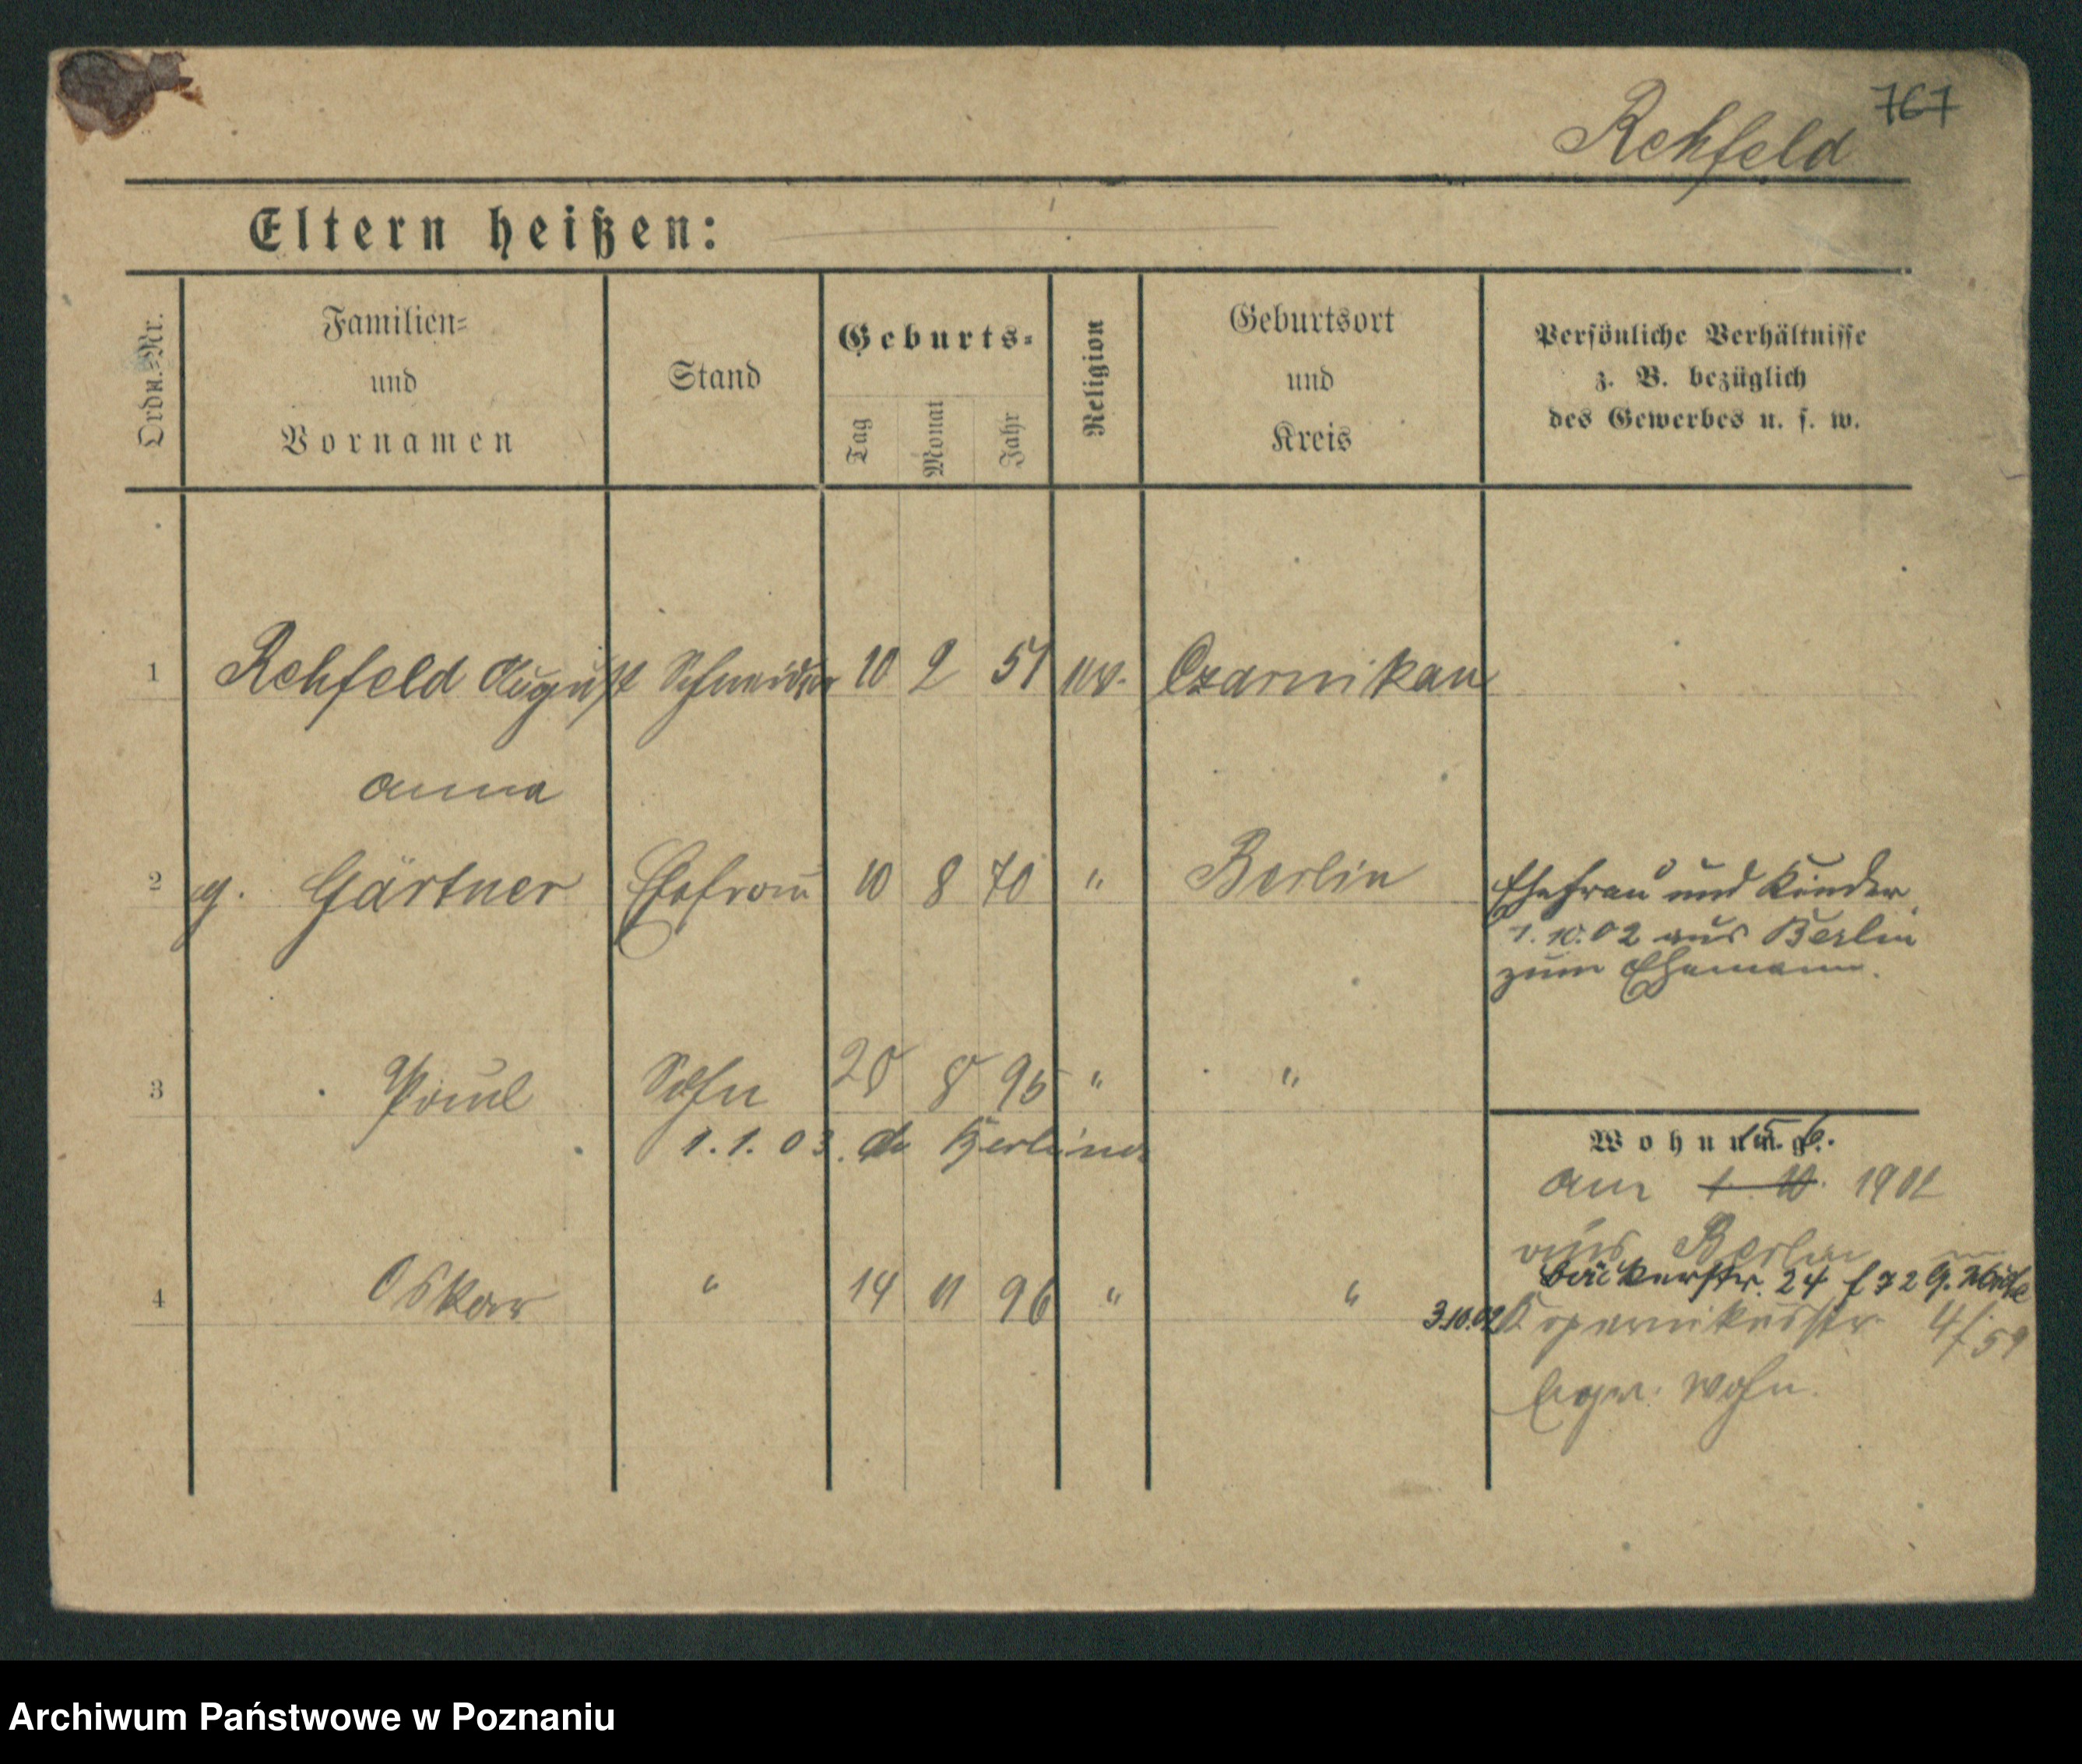 767
Rehfeld
Eltern heißen:
Ordn.-Nr.
Familien-
und
Vornamen
Stand
Geburts-
Tag
Monat
Jahr
Religion
Geburtsort
und
Kreis
Persönliche Verhältnisse
z. B. bezüglich
des Gewerbes u. s. w.
1 Rehfeld August Schneider 10 2 51 ev. Czarnikau
Anna
2 g. Gärtner Ehefrau 10 8 70 " Berlin
Ehefrau und Kinder
1.10.02 aus Berlin
zum Ehemann.
3 Paul Sohn 28 8 95 " "
1.1.03. Berliner
Wohnung.
15. 6.
am 1. 10. 1902
aus Berlin
Bäckerstr. 24 f 72 g.
4 Oskar " 14 11 96 " "
3.10.02 Kopernikusstr. 4/59
Eigen. Wohn.
Archiwum Państwowe w Poznaniu